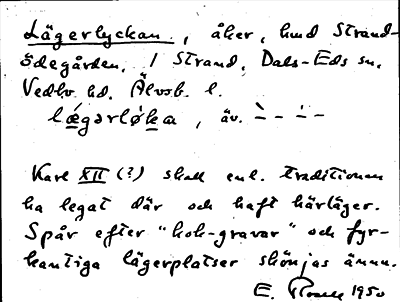 Lägerlyckan, åker, hmd Strand-
ödegården, 1 Strand, Dals-Eds sn,
Vedbo hd. Älvsb. l.
lægərløka, äv.
Karl XII (?) skall enl. traditionen
ha legat där och haft härläger.
Spår efter "kok-gravar" och fyr-
kantiga lägerplatser skönjas ännu.
E. 1950